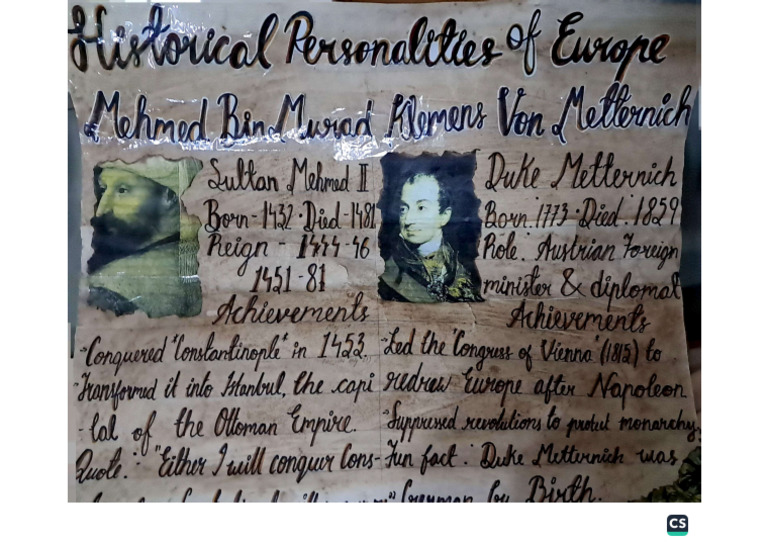 Historical Personalities of Europe
Mehmed Bin Murad
Sultan Mehmed II
Born-1432·Died-1481
Reign - 1444-46
1451-81
Achievements
-Conquered "Constantinople" in 1453.
-Transformed it into Istanbul, the capi
-tal of the Ottoman Empire.
Quote:- "Either I will conquer Cons-
Klemens Von Metternich
Duke Metternich
Born:1773·Died:1859
Role: Austrian Foreign
minister & diplomat
Achievements
-Led the 'Congress of Vienna' (1815) to
redrew Europe after Napoleon
-Suppressed revolutions to protect monarchy.
Fun fact: Duke Metternich was
German by Birth.
CS